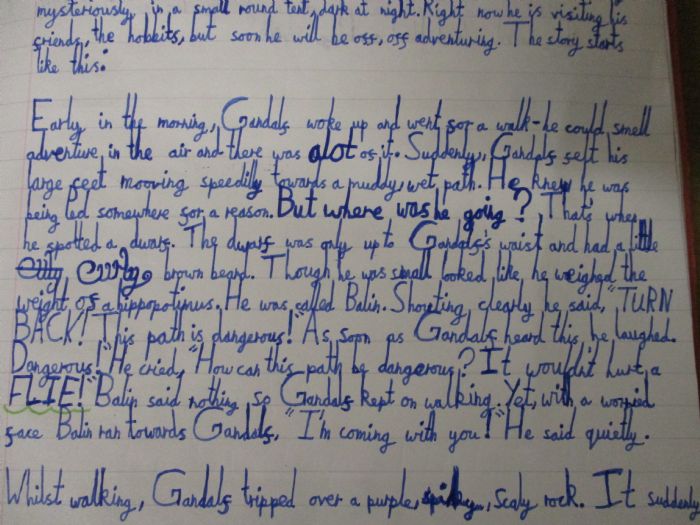 mysteriously in a small round tent, dark at night. Right now he is visiting his
friends, the hobbits, but soon he will be off, off adventuring. The story starts
like this:
Early in the morning, Gandalf woke up and went for a walk - he could smell
adventure in the air and there was alot of it. Suddenly, Gandalf felt his
large feet mooving speedilly towards a muddy, wet path. He knew he was
being led somewhere for a reason. But where was he going? That's when
he spotted a dwarf. The dwarf was only up to Gandalf's waist and had a little
curly, brown beard. Though he was small looked like he weighed the
weight of a hippopotimus. He was called Balin. Shouting clearly he said, "TURN
BACK! This path is dangerous!" As soon as Gandalf heard this, he laughed.
Dangerous!" He cried, "How can this path be dangerous? It wouldn't hurt a
FLIE!" Balin said nothing so Gandalf kept on walking. Yet, with a worried
face Balin ran towards Gandalf, "I'm coming with you!" He said quietly.
Whilst walking, Gandalf tripped over a purple, spiky, scaly rock. It suddenly